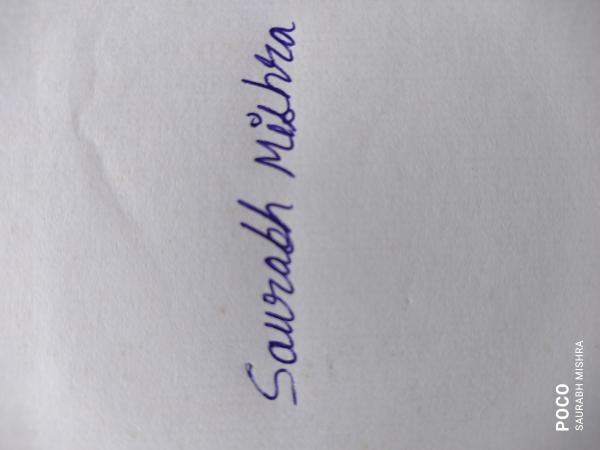 Saurabh Mishra
POCO
SAURABH MISHRA